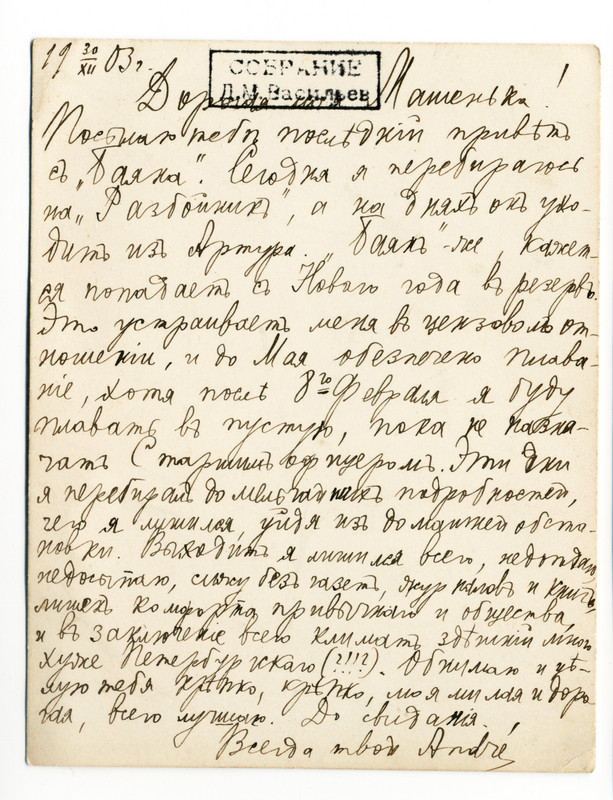 19 30/XII 03 г.
СОБРАНИЕ
Д.М. Васильев
Дорогая Машенька!
Посылаю тебѣ послѣдній привѣтъ
съ „Баяна“. Сегодня я перебираюсь
на „Разбойникъ“, а на дняхъ онъ ухо-
дитъ изъ Артура. „Баянъ“-же, кажет-
ся попадаетъ съ Новаго года въ резервъ.
Это устраиваетъ меня въ цензовомъ от-
ношеніи, и до Мая обезпечено плава-
ніе, хотя послѣ 8го Февраля я буду
плавать въ пустую, пока не назна-
чатъ Старшимъ офицеромъ. Эти дни
я перебиралъ до мельчайшихъ подробностей,
чего я лишился, уйдя изъ домашней обста-
новки. Выходитъ я лишился всего, недоѣдаю,
недосыпаю, сижу безъ газетъ, журналовъ и книгъ,
лишенъ комфорта привычнаго и общества,
и въ заключеніе всего климатъ здѣшній много
хуже Петербургскаго (?!!?). Обнимаю и цѣ-
лую тебя крѣпко, крѣпко, моя милая и доро-
гая, всего лучшаго. До свиданія.
Всегда твой André